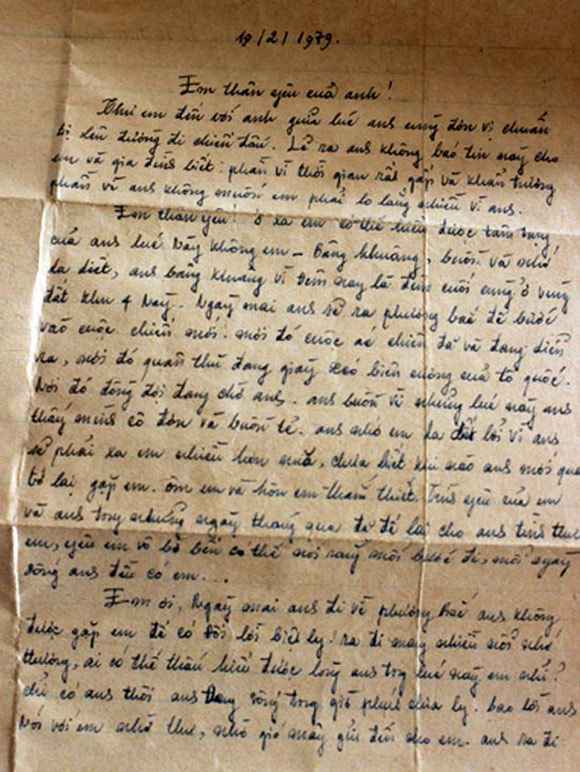 19/2/1979.
Em thân yêu của anh!
Thư em đến với anh giữa lúc ans cùng đơn vị chuẩn
bị lên đường đi chiến đấu. Lẽ ra ans không báo tin này cho
em và gia đins biết: phần vì thời gian rất gấp và khẩn trương
phần vì ans không muốn em phải lo lắng nhiều vì ans.
Em thân yêu! ở xa em có thể hiểu được tâm trạng
của ans lúc này không em - Bâng khuâng, buồn và nhớ
da diết, ans bâng khuâng vì đêm nay là đêm cuối cùng ở vùng
đất khu 4 này. Ngày mai ans sẽ ra phương bắc để bước
vào cuộc chiến mới: nơi đó cuộc ác chiến đã và đang diễn
ra, nơi đó quân thù đang giày xéo biên cương của tổ quốc.
Nơi đó đồng đội đang chờ ans. ans buồn vì những lúc này ans
thấy mins cô đơn và buồn tẻ. ans nhớ em da diết bởi vì ans
sẽ phải xa em nhiều hơn nữa, chưa biết khi nào ans mới quay
trở lại gặp em. ôm em và hôn em thắm thiết. Tins yêu của em
và ans trong những ngày tháng qua đã để lại cho ans tins thương
em, yêu em vô bờ bến có thể nói rằng mỗi bước đi, mỗi ngày
sống ans đều có em...
Em ơi, Ngày mai ans đi về phương Bắc ans không
được gặp em để có đôi lời biệt ly! ra đi mang nhiều nỗi nhớ
thương, ai có thể thấu hiểu được lòng ans trong lúc này em nhỉ?
chỉ có ans thôi ans đang sống trong giờ phút chia ly. bao lời ans
Nói với em nhờ thư, nhờ gió mây gửi đến cho em. ans ra đi